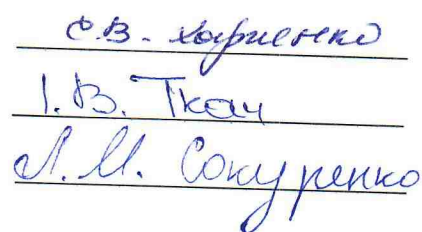 С.В. Харченко
І.В. Ткач
Л.М. Сокуренко